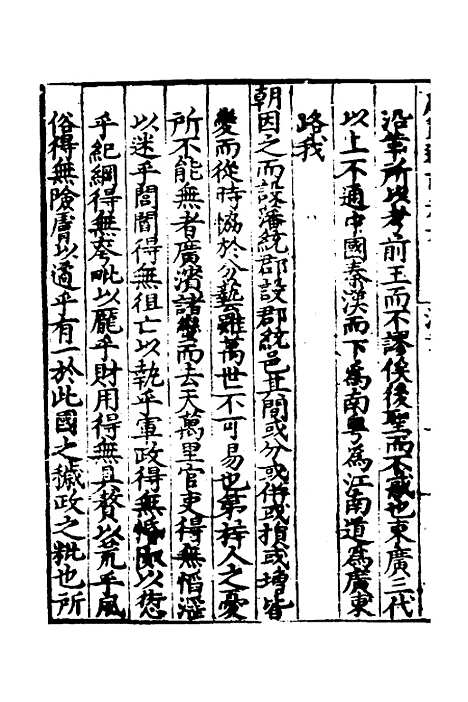 沿革所以考前王而不謬俟後聖而不惑也東廣三代
以上不通中國秦漢而下為南粤為江南道為廣東
路我
朝因之而設藩統郡設郡統邑其間或分或併或損或增皆
變而從時協於分藝雖萬世不可易也第梓人之憂
所不能無者廣濱諸蠻而去天萬里官吏得無慆滛
以迷乎閭閻得無徂亡以執乎軍政得無惽以愆
乎紀綱得無夸毗以厖乎財用得無具贅以荒乎風
俗得無險膚以過乎有一於此國之穢政之粃也所